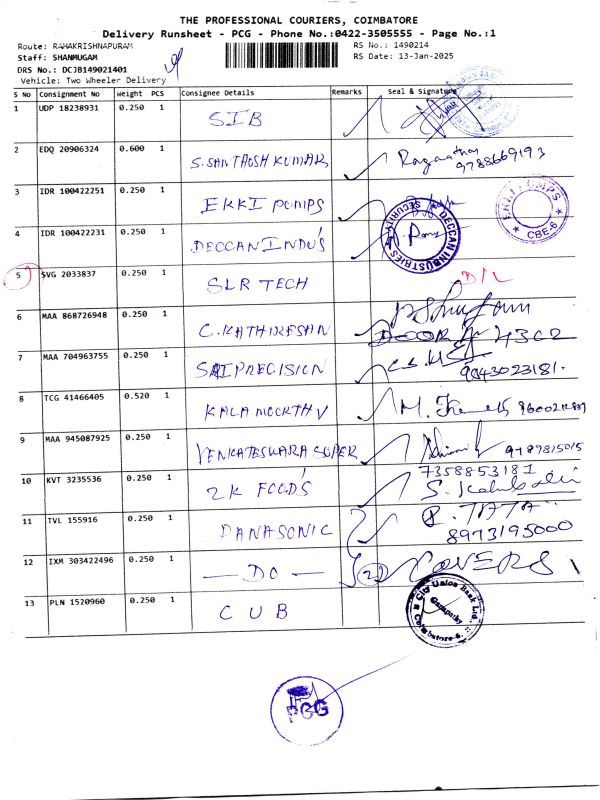 THE PROFESSIONAL COURIERS, COIMBATORE
Delivery Runsheet - PCG - Phone No.:0422-3505555 - Page No.:1
Route: RAMAKRISHNAPURAM
RS No.: 1490214
Staff: SHANMUGAM
RS Date: 13-Jan-2025
DRS No.: DCJB149021401
Vehicle: Two Wheeler Delivery
S No Consignment No Weight PCS Consignee Details Remarks Seal & Signature
1 UDP 18238931 0.250 1 SIB
2 EDQ 20906324 0.600 1 S.SANTHOSH KUMAR 9788669193
3 IDR 100422251 0.250 1 EKKI PUMPS
EKKI PUMPS CBE-6
4 IDR 100422231 0.250 1 DECCAN INDU'S
DECCAN INDUSTRIES SECURITY
5 SVG 2033837 0.250 1 SLR TECH D/L
6 MAA 868726948 0.250 1 C.KATHIRESAN
DOOR 4302
7 MAA 704963755 0.250 1 SAI PRECISION
9043023181.
8 TCG 41466405 0.520 1 KALAMOORTHY M.
9 MAA 945087925 0.250 1 VENKATESWARA SUPER 9787815015
10 KVT 3235536 0.250 1 2K FOOD'S 7358853181
S.
11 TVL 155916 0.250 1 PANASONIC R. TATA
8973195000
12 IXM 303422496 0.250 1 — DO — (2) COVERS
13 PLN 1520960 0.250 1 CUB
City Union Bank Ltd.
Ganapathy
Coimbatore-6.
PCG